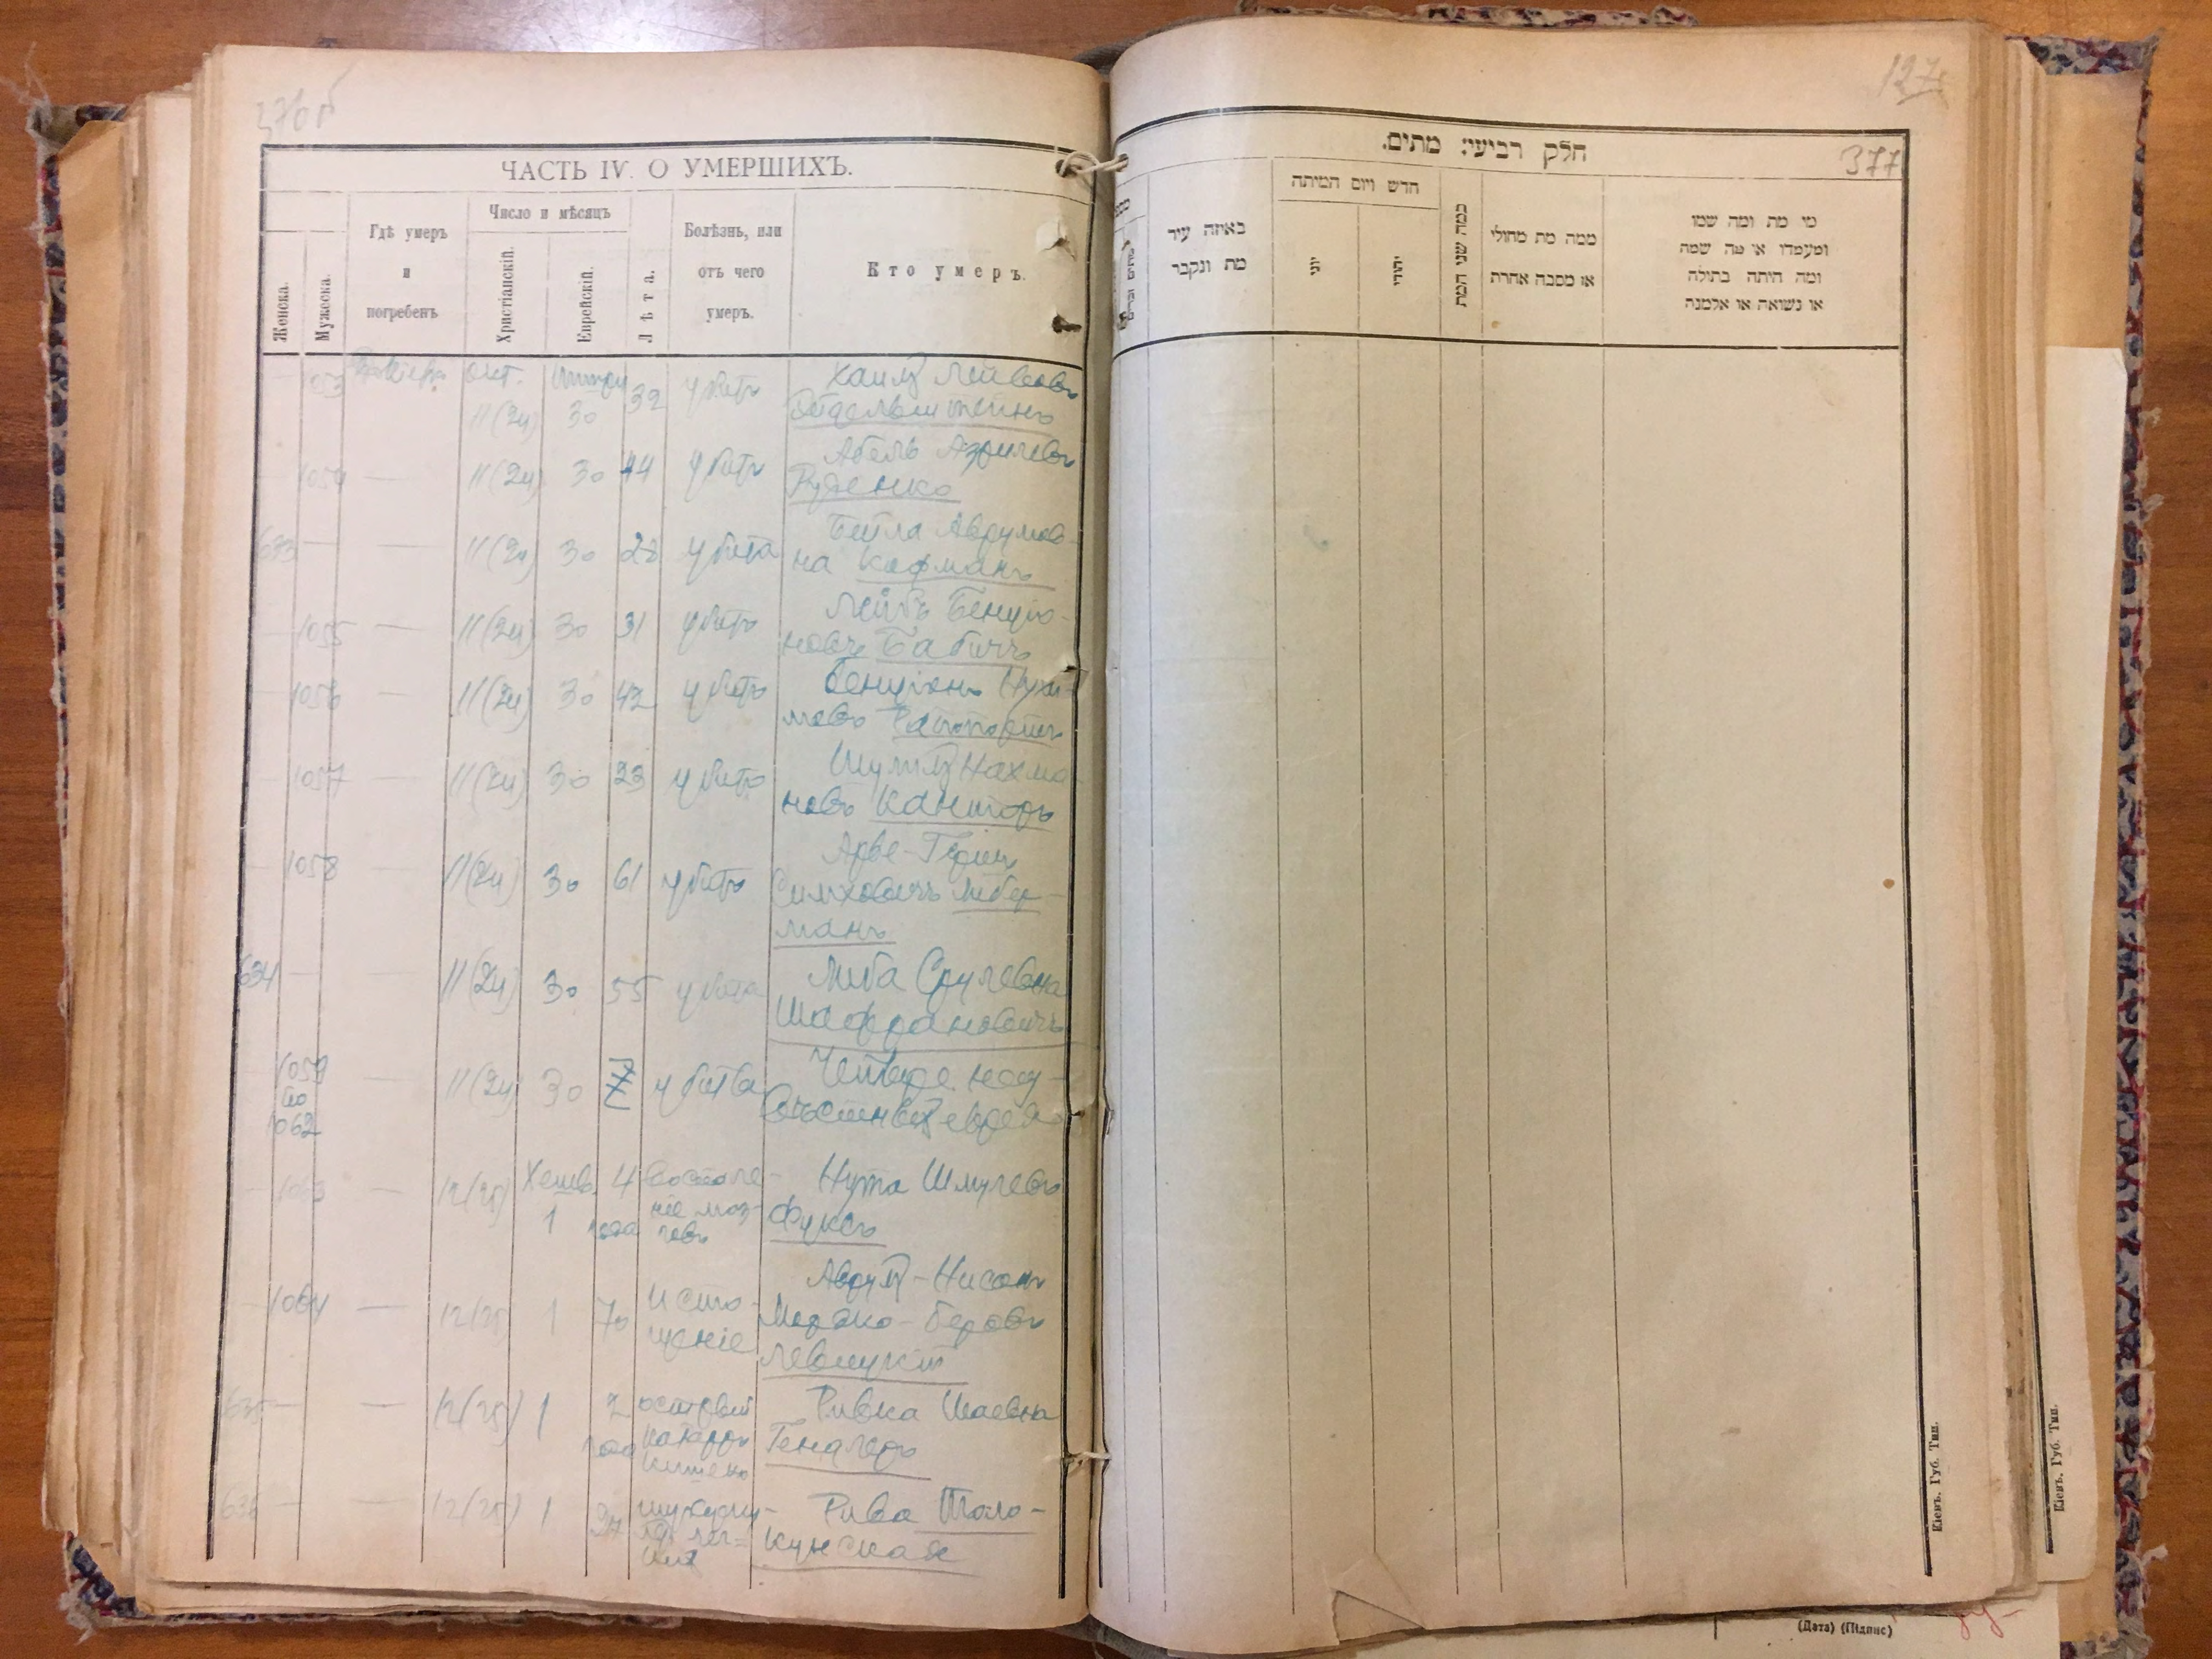 376 б
ЧАСТЬ IV. О УМЕРШИХЪ.
Женска.
Мужеска.
Гдѣ умеръ
и
погребенъ
Число и мѣсяцъ
Христіанскій.
Еврейскій.
Лѣта.
Болѣзнь, или
отъ чего
умеръ.
Кто умеръ.
1053 окт. 11(24) 30 32 убитъ Хаимъ Лейбовъ
1054 — 11(24) 30 44 убитъ Абель Азрилевъ
Руденко
633 — — 11(24) 30 28 убита Бейла Аврумов-
на Кофманъ
1055 — 11(24) 30 31 убитъ Лейбъ Бенціо-
новъ Бабичъ
1056 — 11(24) 30 42 убитъ Бенціонъ Нухи-
мовъ Рапопортъ
1057 — 11(24) 30 23 убитъ Нахма-
новъ Канторъ
1058 — 11(24) 30 61 убитъ Герш
Симховичъ Либер-
манъ
634 — — 11(24) 30 55 убита Либа Срулевна
Шафрановичъ
1059
по
1062 — 11(24) 30 убиты
еврея
1063 — 12(25) Хешв. 1 4 года воспале-
ніе моз-
говъ Нута Шмулевъ
Фуксъ
1064 — 12(25) 1 70 исто-
щеніе Аврумъ-Нисонъ
Мордко-Беровъ
Левицкій
635 — — 12(25) 1 2 года острый
катарръ
кишекъ Ривка Шаевна
Гендлеръ
636 — — 12(25) 1 Рива Толо-
кунская
127
חלק רביעי: מתים.
377
באיזה עיר
מת ונקבר
חדש ויום המיתה
יוני
יהודי
כמה שני המת
ממה מת מחולי
או מסבה אחרת
מי מת ומה שמו
ומעמדו או מה שמה
ומה היתה בתולה
או נשואה או אלמנה
Кіевъ. Губ. Тип.
Кіевъ. Губ. Тип.
(Дата) (Підпис)